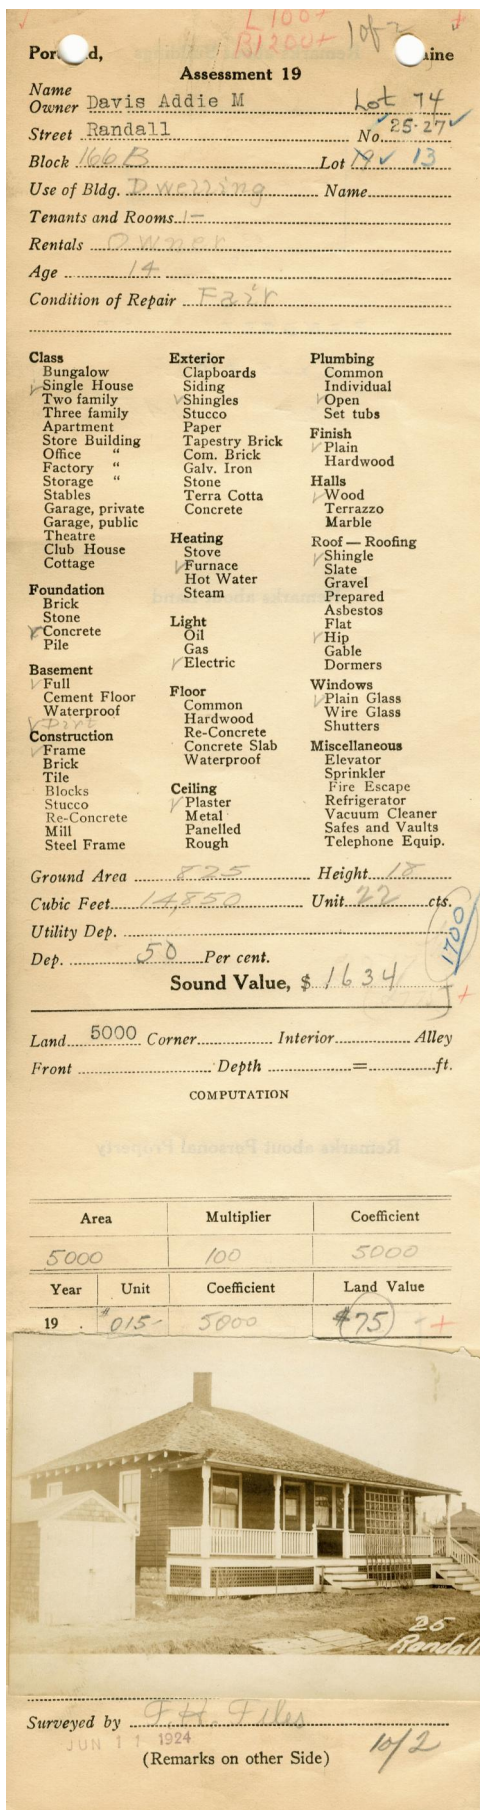 L 100+
B1200+ 1 of 2 +
Portland, Maine
Assessment 19
Name
Owner Davis Addie M Lot 74
Street Randall No. 25-27
Block 166B Lot 19 13
Use of Bldg. Dwelling Name
Tenants and Rooms 1-
Rentals Owner
Age 14
Condition of Repair Fair
Class
Bungalow
Single House
Two family
Three family
Apartment
Store Building
Office "
Factory "
Storage "
Stables
Garage, private
Garage, public
Theatre
Club House
Cottage
Foundation
Brick
Stone
Concrete
Pile
Basement
Full
Cement Floor
Waterproof
Part
Construction
Frame
Brick
Tile
Blocks
Stucco
Re-Concrete
Mill
Steel Frame
Exterior
Clapboards
Siding
Shingles
Stucco
Paper
Tapestry Brick
Com. Brick
Galv. Iron
Stone
Terra Cotta
Concrete
Heating
Stove
Furnace
Hot Water
Steam
Light
Oil
Gas
Electric
Floor
Common
Hardwood
Re-Concrete
Concrete Slab
Waterproof
Ceiling
Plaster
Metal
Panelled
Rough
Plumbing
Common
Individual
Open
Set tubs
Finish
Plain
Hardwood
Halls
Wood
Terrazzo
Marble
Roof — Roofing
Shingle
Slate
Gravel
Prepared
Asbestos
Flat
Hip
Gable
Dormers
Windows
Plain Glass
Wire Glass
Shutters
Miscellaneous
Elevator
Sprinkler
Fire Escape
Refrigerator
Vacuum Cleaner
Safes and Vaults
Telephone Equip.
Ground Area 825 Height 18
Cubic Feet 14,850 Unit 22 cts.
Utility Dep.
1700
Dep. 50 Per cent.
Sound Value, $ 1634
+
Land 5000 Corner Interior Alley
Front Depth = ft.
COMPUTATION
Remarks about Personal Property
Area Multiplier Coefficient
5000 100 5000
Year Unit Coefficient Land Value
19 $015- 5000 $75 +
25
Randall
Surveyed by F.H. Files
JUN 11 1924
(Remarks on other Side)
10/2